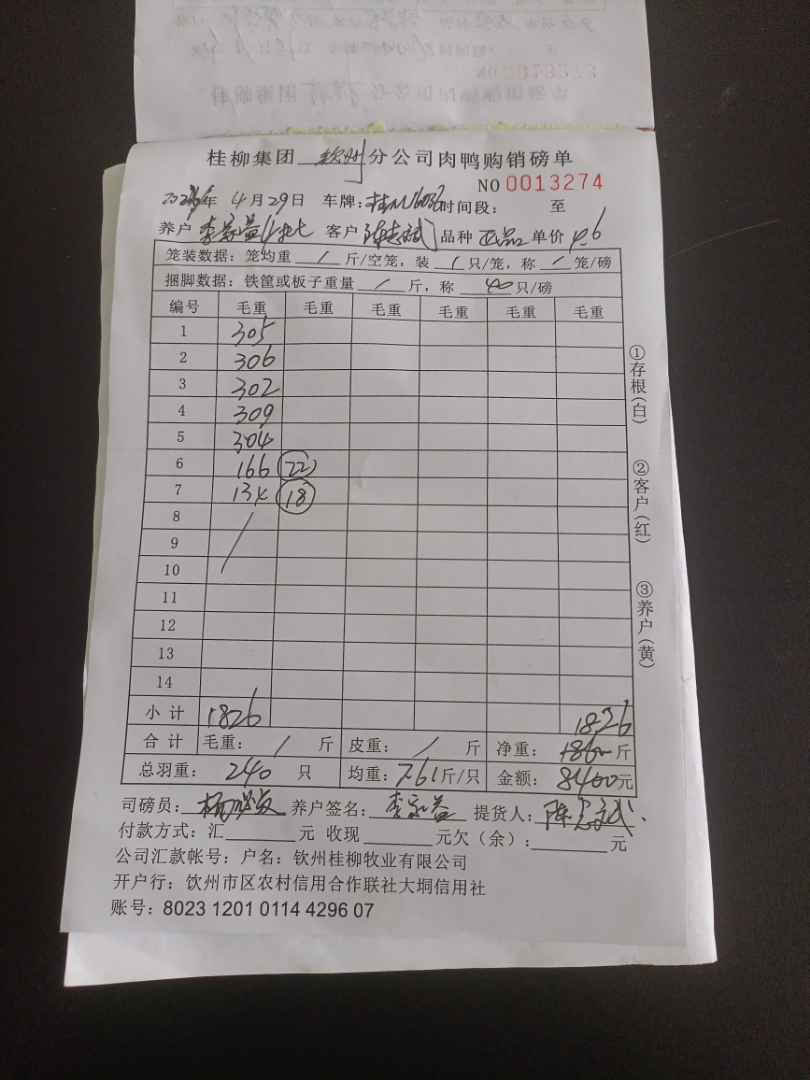 NO 0013273
桂柳集团 钦州 分公司肉鸭购销磅单
NO 0013274
年 4月29日 车牌: 时间段: 至
养户 李家益 客户 陈志斌 品种 正品 单价 4.6
笼装数据：笼均重 / 斤/空笼，装 / 只/笼，称 / 笼/磅
捆脚数据：铁筐或板子重量 / 斤，称 40 只/磅
编号 毛重 毛重 毛重 毛重 毛重 毛重
1 305
2 306
3 302
4 309
5 304
6 166 22
7 18
8
9
10
11
12
13
14
小计 1826 1826
合计 毛重： / 斤 皮重： / 斤 净重： 斤
总羽重： 240 只 均重：7.61斤/只 金额：8400元
司磅员： 养户签名：李家益 提货人：陈志斌
付款方式：汇 元 收现 元欠（余）： 元
公司汇款帐号：户名：钦州桂柳牧业有限公司
开户行：饮州市区农村信用合作联社大垌信用社
账号：8023 1201 0114 4296 07
①存根(白)
②客户(红)
③养户(黄)